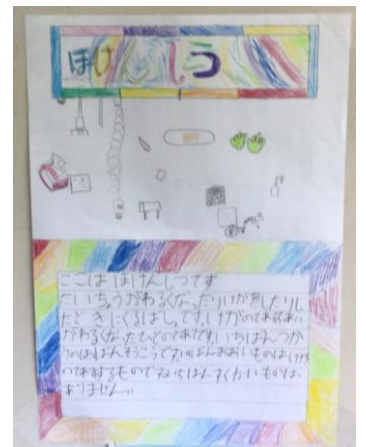 ほけんしつ
ここは ほけんしつです
たいちょうがわるくなったりけがをしたりし
たときにくるばしょです。けがの
がわるくなったひとの いちばんつか
うのはばんそうこうです。いちばんおおいものはけが
の するものです。いちばんすくないものは、
ありません。